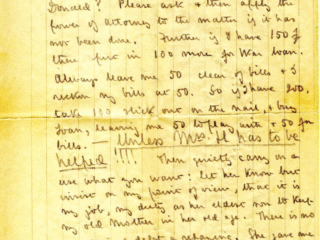 Donald? Please ask & then apply the
power of attorney to the matter if it has
not been done. Further if I have 150 £
there put in 100 more for War Loan.
Always leave me 50 clear of bills & I
reckon my bills at 50. So if I have 200,
take 100 stick out on the nail, & buy
Loan, leaving me 50 to play with + 50 for
bills. — Unless Mrs. H has to be
helped !!!! Then quietly carry on &
use what you want: let her know but
insist on my point of view, that it is
my job, my duty as her eldest son to keep
my old mother in her old age. There is no
debt a repaying. She gave me